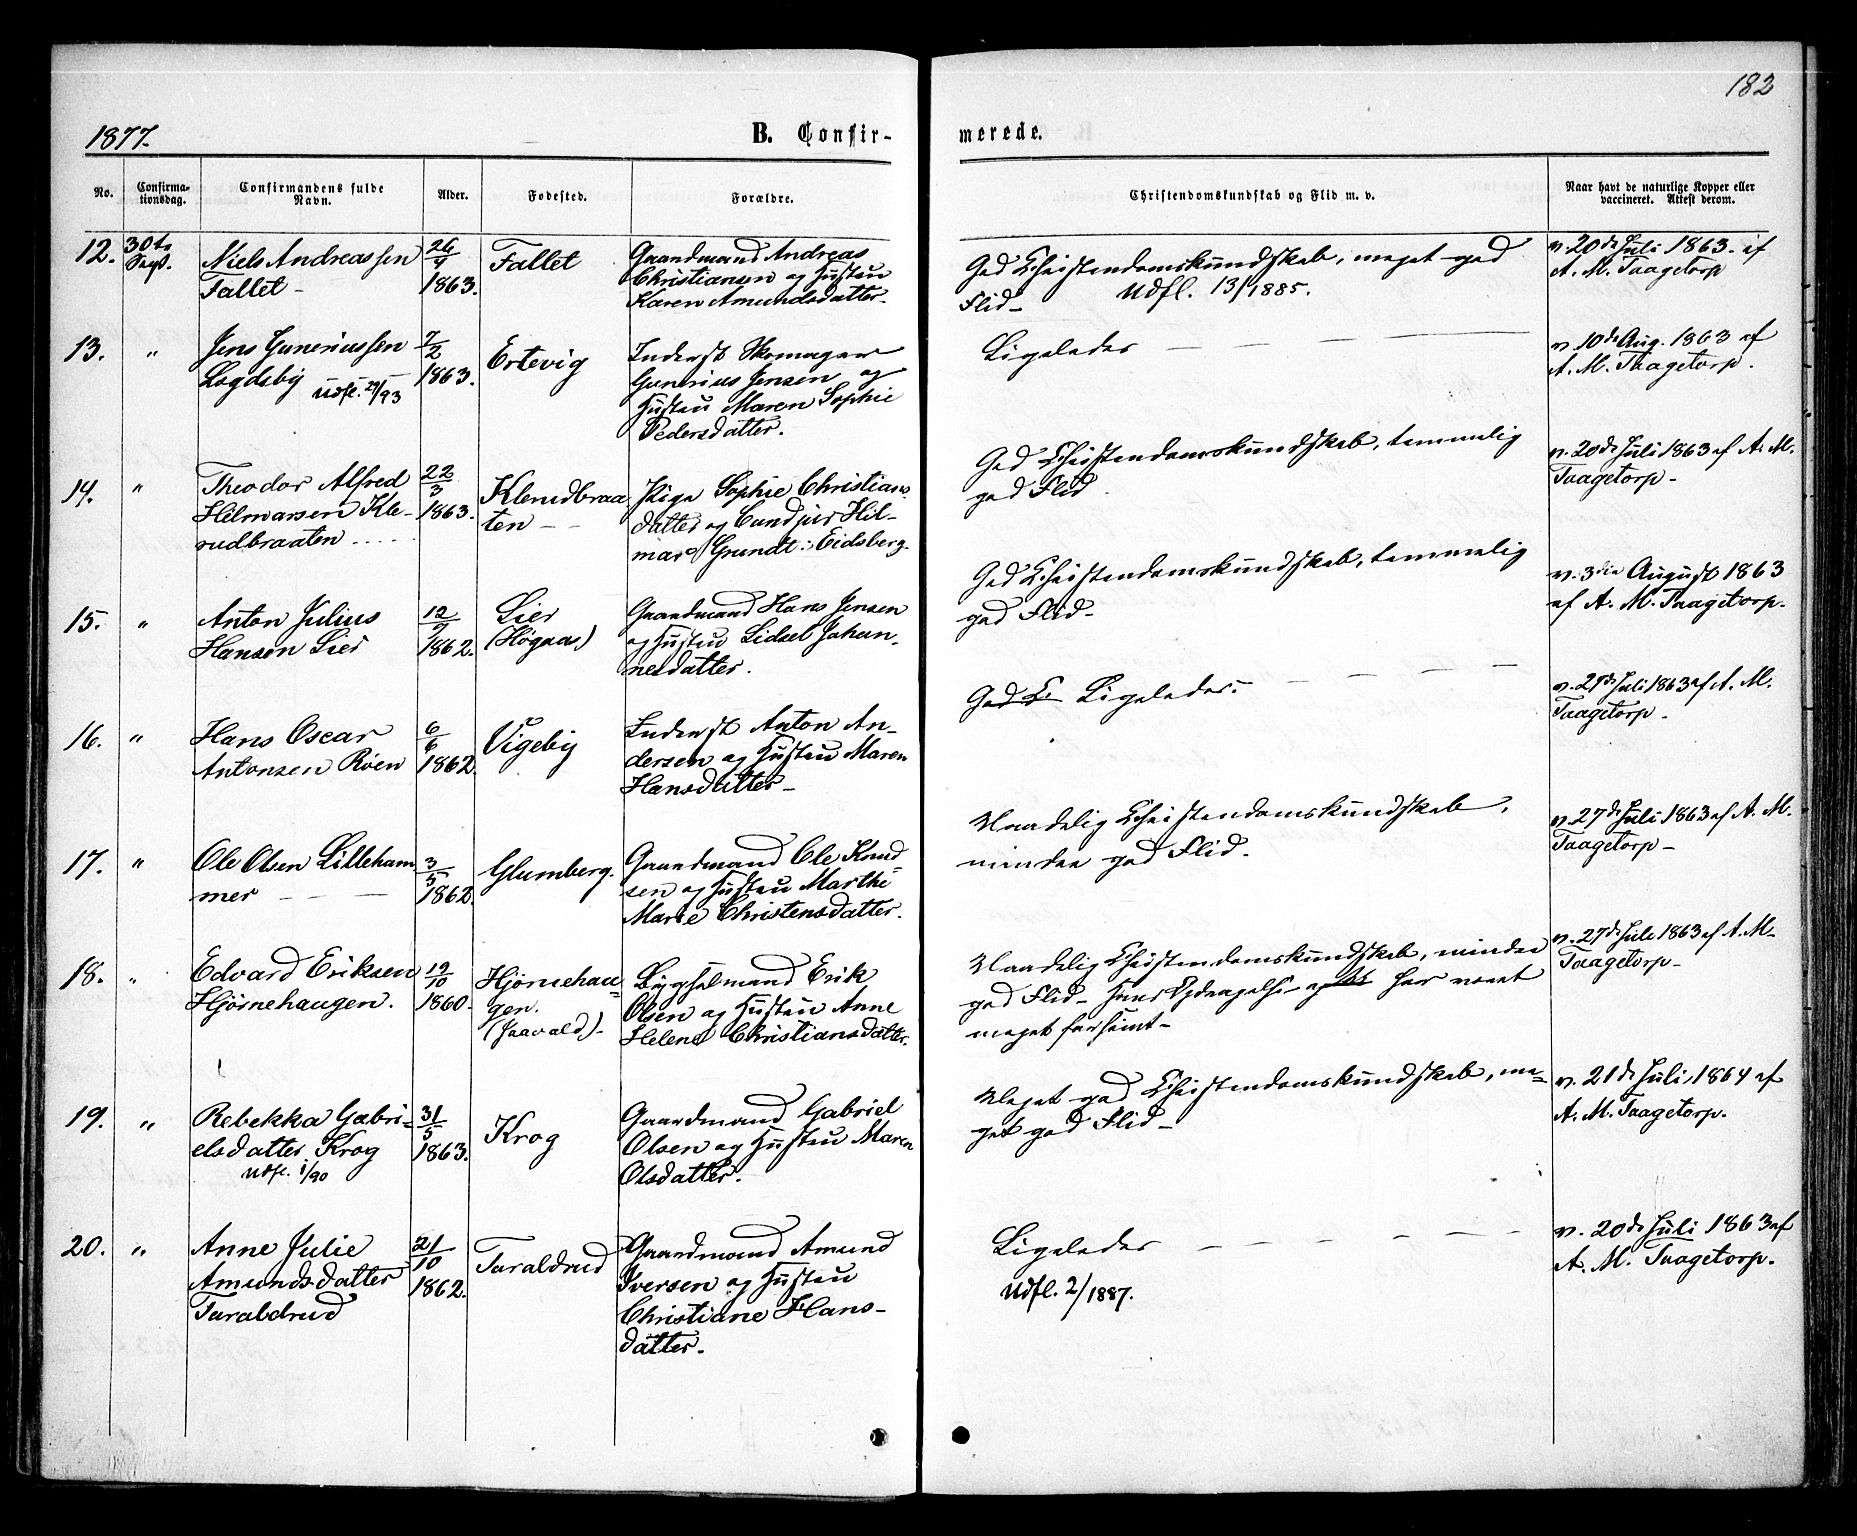 182
1877.
B. Confir-
merede.
No.
Confirma-
tionsdag.
Confirmandens fulde
Navn.
Alder.
Fødested.
Forældre.
Christendomskundskab og Flid m. v.
Naar havt de naturlige Kopper eller
vaccineret. Attest derom.
12.
30te
Sept.
Niels Andreassen
Fallet -
1863.
Fallet
Gaardmand Andreas
Christiansen og Hustru
Karen Amundsdatter.
God Christendomskundskab, meget god
Flid -
Udfl. 13/1885.
v. 20de Juli 1863. af
A. M. Taagetorp
13.
"
Jens Guneriussen
Logdsby
Udfl. 29/93
7/2
1863.
Ertevig
Inderst Skomager
Gunerius Jensen og
Hustru Maren Sophie
Pedersdatter.
Ligeledes — — — —
v. 10de Aug. 1863 af
A. M. Taagetorp.
14.
"
Theodor Alfred
Hilmarsen Kle-
rudbraaten .....
22/3
1863.
Klerudbraa
ten - -
Pige Sophie Christians-
datter og Cand jur Hil-
mar Grundt : Eidsberg.
God Christendomskundskab, temmelig
god Flid
v. 20de Juli 1863 af A. M.
Taagetorp -
15.
"
Anton Julius
Hansen Lier
12/9
1862.
Lier
(Høgaas)
Gaardmand Hans Jensen
og Hustru Lidsel Johan-
nesdatter.
God Christendomskundskab, temmelig
god Flid -
v. 3die August 1863
af A. M. Taagetorp.
16.
"
Hans Oscar
Antonsen Röen
6/6
1862.
Vigeby
Inderst Anton An-
dersen og Hustru Maren
Hansdatter -
God C Ligeledes. — — — —
v. 21de Juli 1863 af A. M.
Taagetorp.
17.
"
Ole Olsen Lilleham
mer - - -
3/5
1862.
Glumberg.
Gaardmand Ole Knud-
sen og Hustru Marthe
Marie Christensdatter.
Maadelig Christendomskundskab,
mindre god Flid.
v. 27de Juli 1863 af A. M.
Taagetorp -
18.
"
Edvard Eriksen
Hjørnehaugen.
19/10
1860.
Hjørnehau-
gen.
(Jaavald) -
Bygselmand Erik
Olsen og Hustru Anne
Helene Christiansdatter.
Maadelig Christendomskundskab, mindre
god Flid - hans Opdragelse har været
meget forsømt -
v. 27de Juli 1863 af A. M.
Taagetorp -
19.
"
Rebekka Gabri-
elsdatter Krog
Udfl. 1/90
31/5
1863.
Krog
Gaardmand Gabriel
Olsen og Hustru Maren
Olsdatter.
Meget god Christendomskundskab, me-
get god Flid -
v. 21de Juli, 1864 af
A. M. Taagetorp.
20.
"
Anne Julie
Amundsdatter
Taraldrud
21/10
1862.
Taraldrud
Gaardmand Amund
Iversen og Hustru
Christiane Hans-
datter.
Ligeledes — — — — —
Udfl. 2/1887.
v. 20de Juli 1863 af
A. M. Taagetorp.